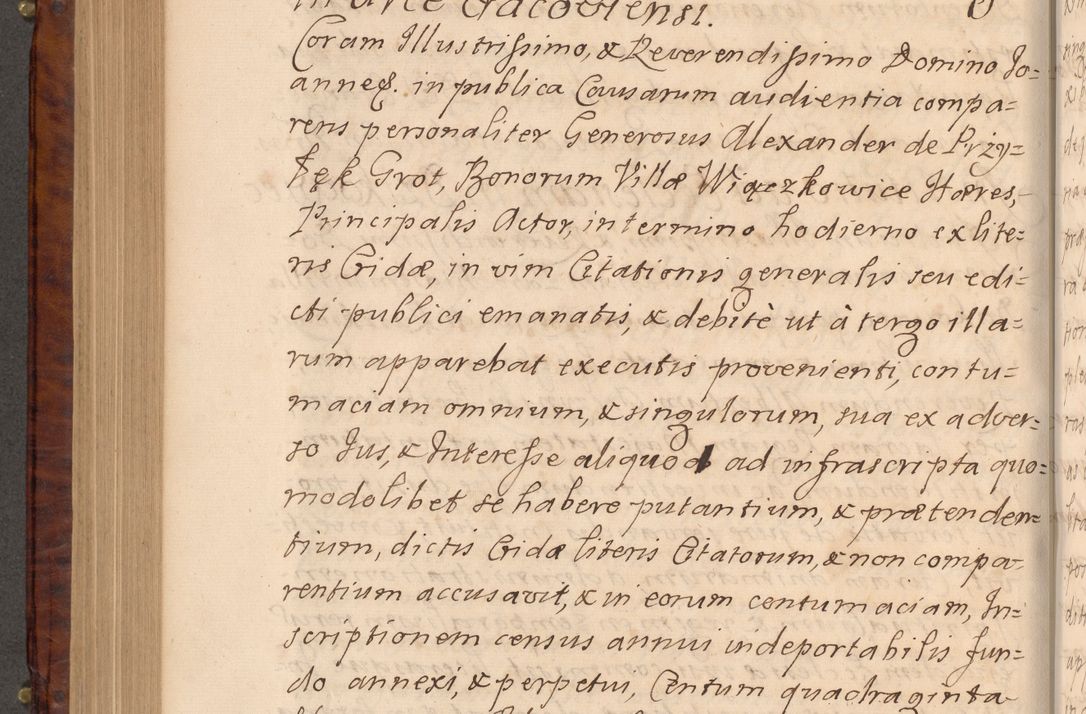 in arce Cracoviensi.
Coram Illustrissimo, & Reverendissimo Domino Jo=
anneq. in publica Causarum audientia compa=
rens personaliter Generosus Alexander de Przy=
łęk Grot, Bonorum Villæ Więczkowice Hæres,
Principalis Actor, in termino hodierno ex lite=
ris Cridæ, in vim Citationis generalis seu edi=
cti publici emanatis, & debitè ut à tergo illa=
rum apparebat executis provenienti, contu=
maciam omnium, & singulorum, sua ex adver=
so Jus, & Interesse aliquod ad infrascripta quo=
modolibet se habere putantium, & prætenden=
tium, dictis Cridæ literis Citatorum, & non compa=
rentium accusavit, & in eorum contumaciam, In=
scriptionem census annui indeportabilis fun=
do annexi, & perpetui, Centum quadraginta